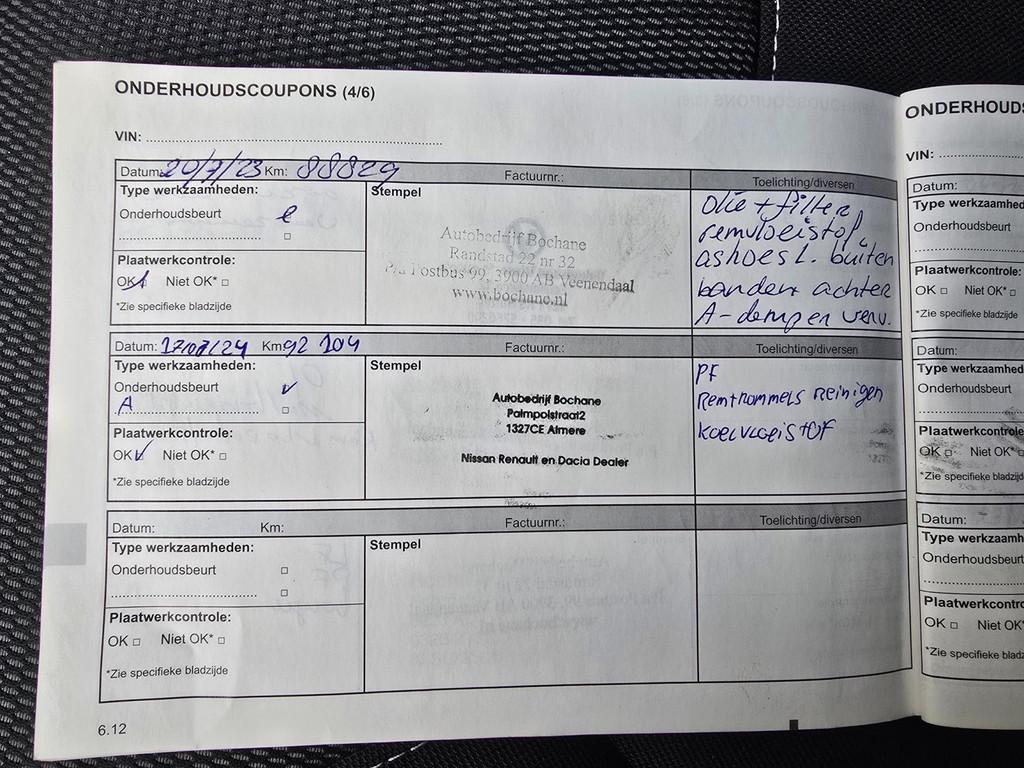 ONDERHOUDSCOUPONS (4/6)
VIN:
Datum: 20/7/23 Km: 88829 Factuurnr.: Toelichting/diversen
Type werkzaamheden:
Onderhoudsbeurt
Plaatwerkcontrole:
OK Niet OK*
*Zie specifieke bladzijde
Stempel
Autobedrijf Bochane
Randstad 22 nr 32
P/a Postbus 99, 3900 AB Veenendaal
www.bochane.nl
olie + filter,
remvloeistof,
ashoes l. buiten
banden achter
A-dempen verv.
Datum: 17/07/24 Km: 92 104 Factuurnr.: Toelichting/diversen
Type werkzaamheden:
Onderhoudsbeurt
A
Plaatwerkcontrole:
OK Niet OK*
*Zie specifieke bladzijde
Stempel
Autobedrijf Bochane
Palmpolstraat2
1327CE Almere
Nissan Renault en Dacia Dealer
PF
Remtrommels reinigen
koelvloeistof
Datum: Km: Factuurnr.: Toelichting/diversen
Type werkzaamheden:
Onderhoudsbeurt
Plaatwerkcontrole:
OK Niet OK*
*Zie specifieke bladzijde
Stempel
6.12
ONDERHOUDS
VIN:
Datum:
Type werkzaamhed
Onderhoudsbeurt
Plaatwerkcontrole:
OK Niet OK*
*Zie specifieke bladzijde
Datum:
Type werkzaamhed
Onderhoudsbeurt
Plaatwerkcontrole
OK Niet OK*
*Zie specifieke bladzijd
Datum:
Type werkzaamh
Onderhoudsbeurt
Plaatwerkcontro
OK Niet OK*
*Zie specifieke bladz